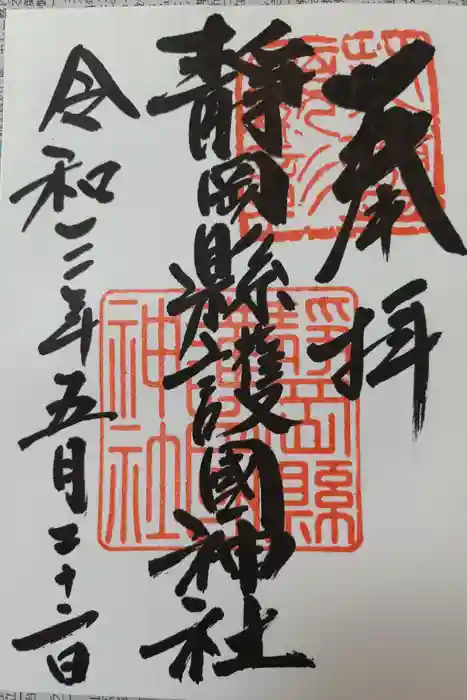 奉拝
靜岡縣護國神社
令和三年五月二十二日
靜岡縣
護國
神社